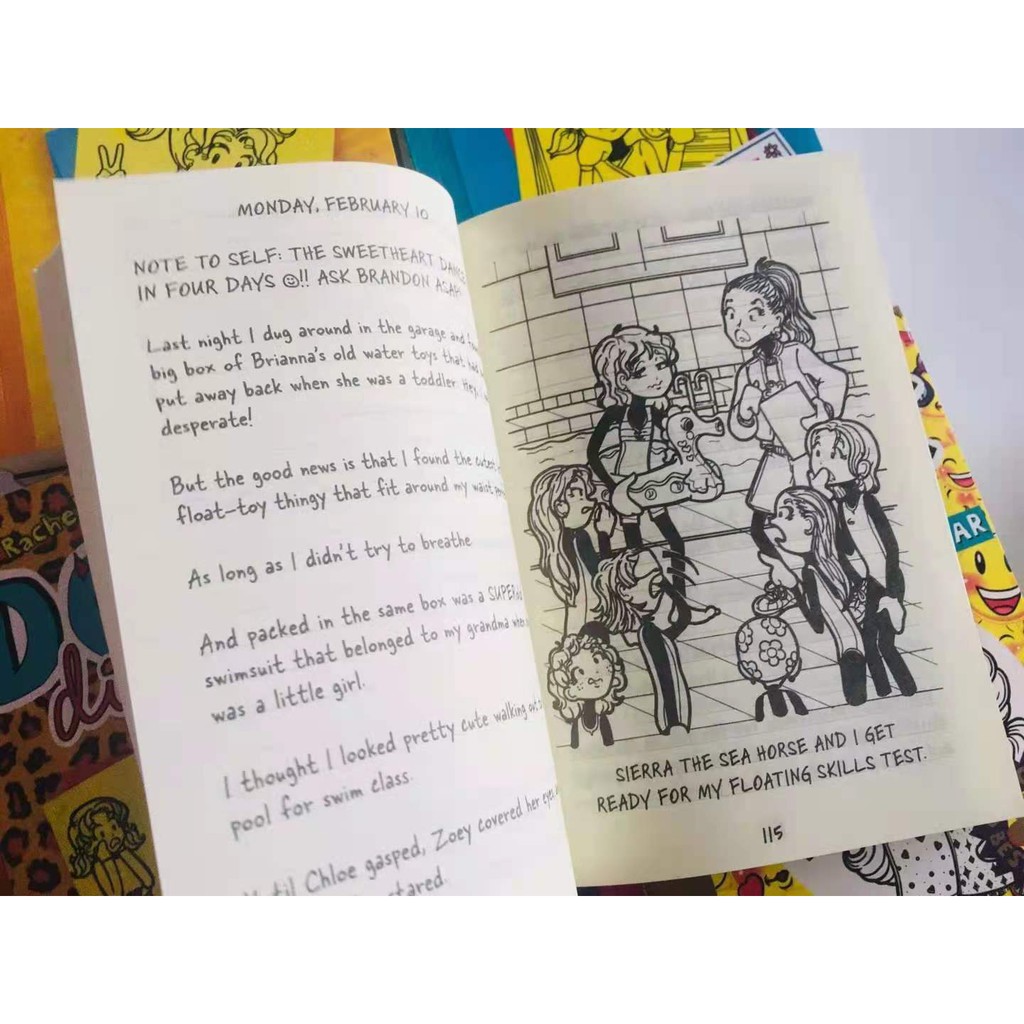 MONDAY, FEBRUARY 10
NOTE TO SELF: THE SWEETHEART DANCE
IN FOUR DAYS ☺!! ASK BRANDON ASAP
Last night I dug around in the garage and
big box of Brianna's old water toys that
put away back when she was a toddler. Hey,
desperate!
But the good news is that I found the cutest
float-toy thingy that fit around my waist
As long as I didn't try to breathe
And packed in the same box was a SUPER
swimsuit that belonged to my grandma when
was a little girl.
I thought I looked pretty cute walking out
pool for swim class.
Until Chloe gasped, Zoey covered her eyes
stared.
SIERRA THE SEA HORSE AND I GET
READY FOR MY FLOATING SKILLS TEST.
115
Rache
D
di
AR
BES